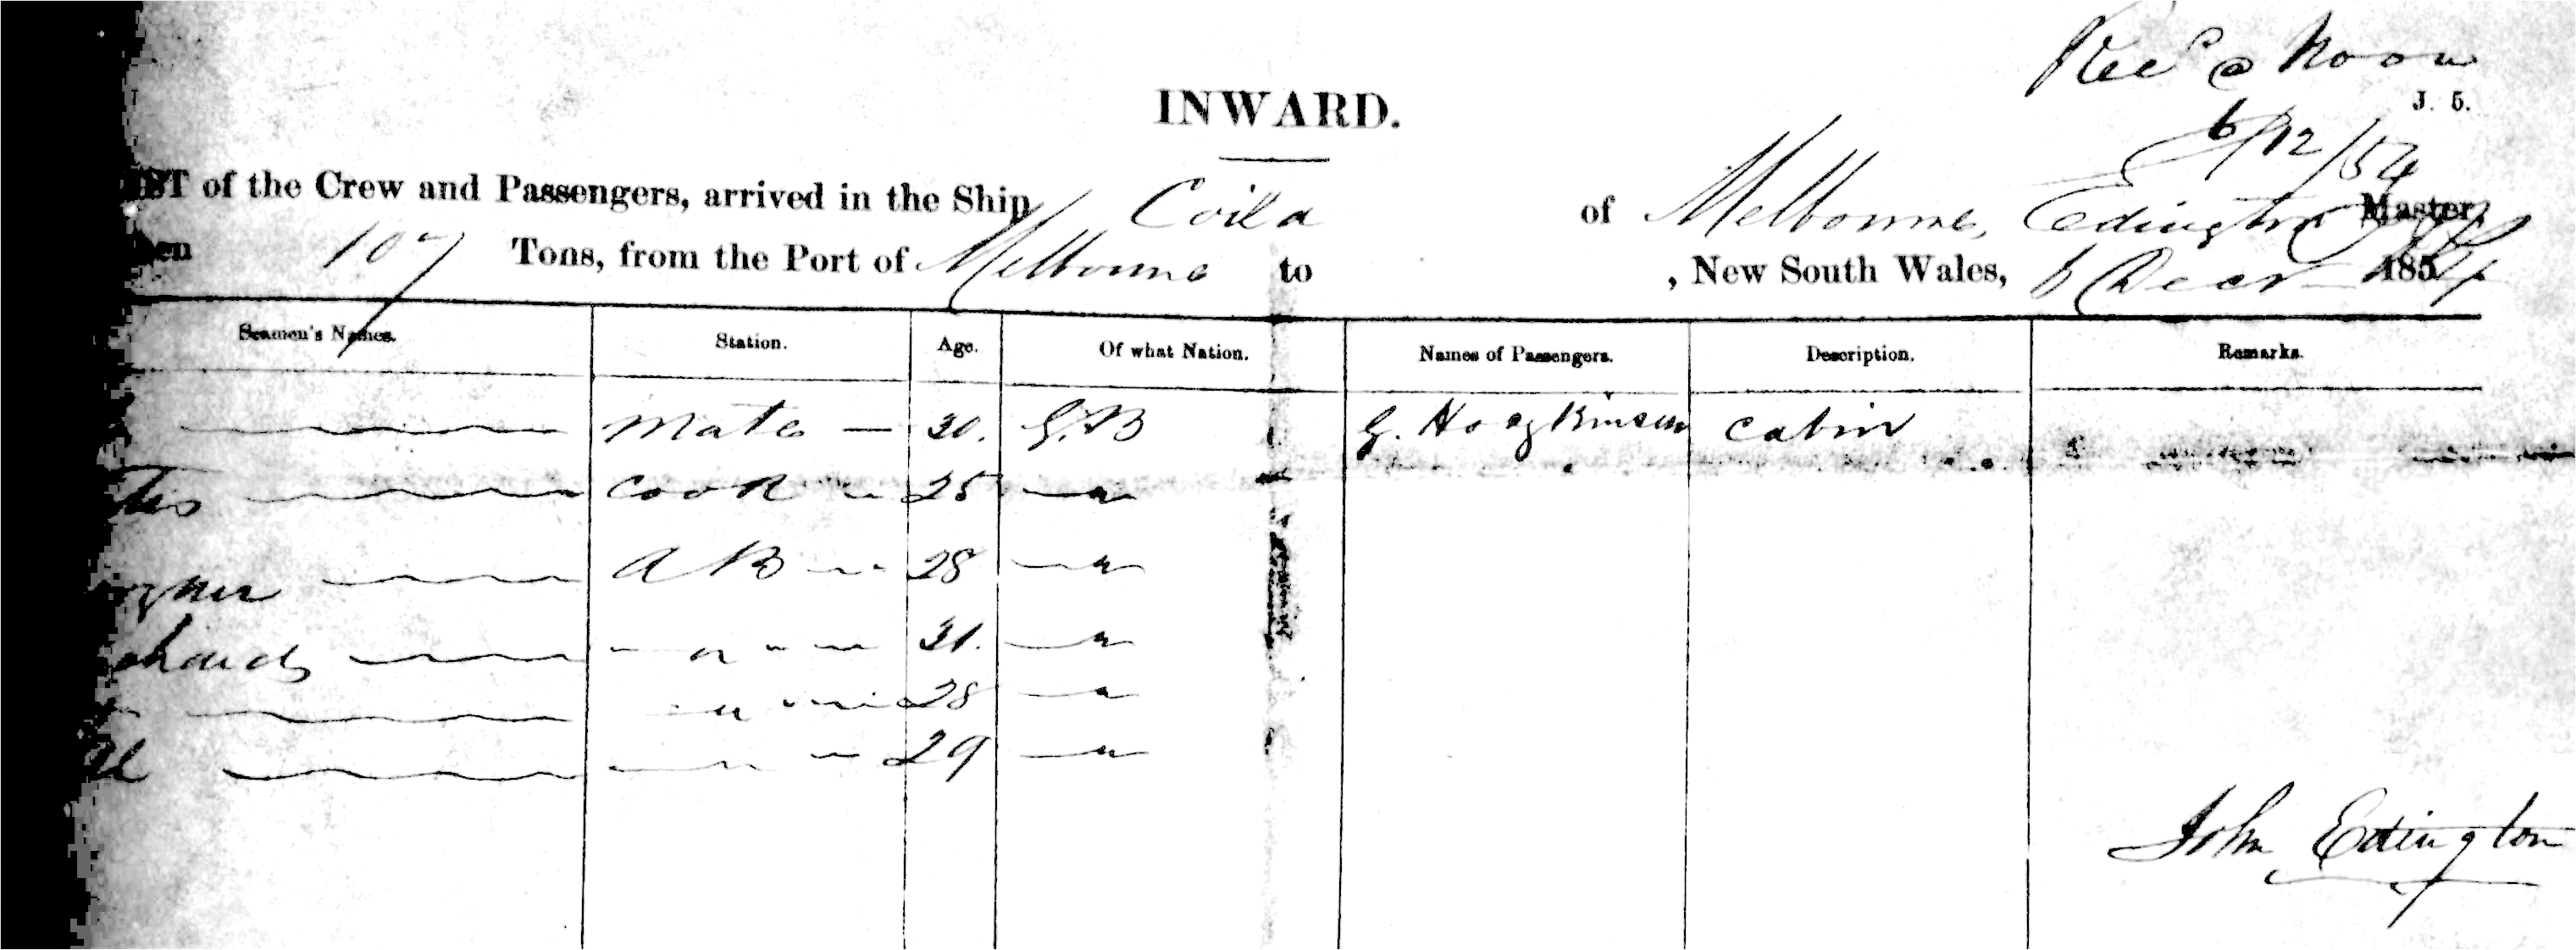 Rec'd @ Noon
INWARD.
J. 5.
6/12/54
LIST of the Crew and Passengers, arrived in the Ship Coila of Melbourne, Edington Master,
107 Tons, from the Port of Melbourne to , New South Wales, 6 Decr 1854
Seamen's Names. Station. Age. Of what Nation. Names of Passengers. Description. Remarks.
Mate — 30. G.B G. Hodgkinson Cabin
Cook " 25 — " —
A B " 28 — " —
" " 31. — " —
" " 28 — " —
" " 29 — " —
John Edington